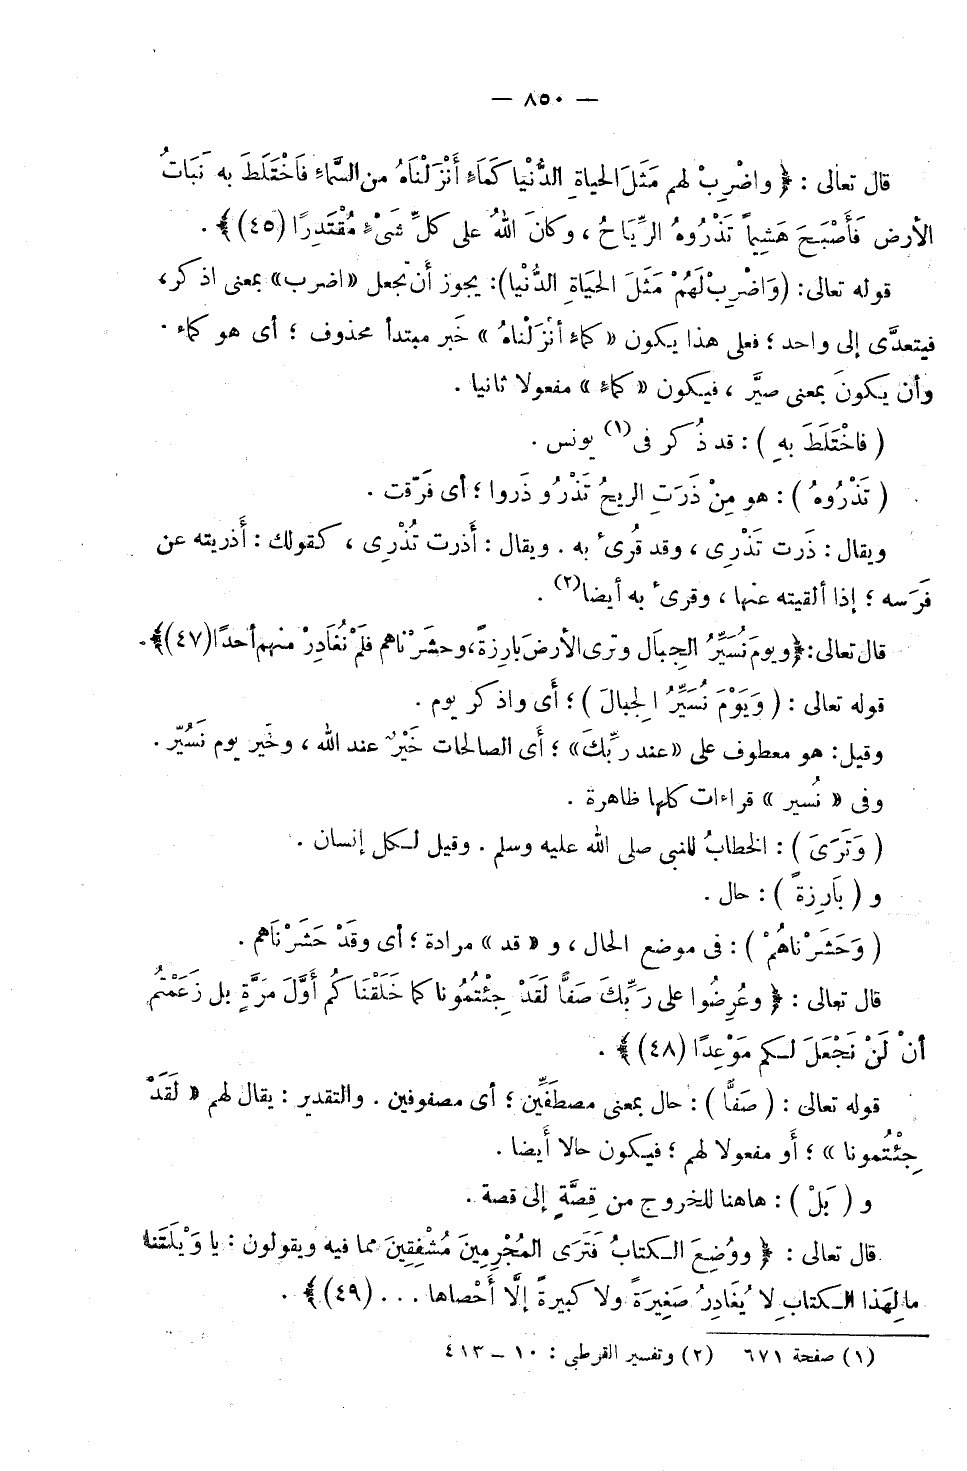 — ٨٥٠ —
قال تعالى : ﴿ واضْرِبْ لهم مَثَلَ الحياةِ الدُّنْيا كَمَاءٍ أَنْزَلْنَاهُ من السَّماءِ فَاخْتَلَطَ به نَبَاتُ
الأرض فَأَصْبَحَ هَشِيماً تَذْرُوهُ الرِّيَاحُ ، وكانَ اللهُ على كلِّ شَيْءٍ مُقْتَدِرًا (٤٥) ﴾ .
قوله تعالى : (وَاضْرِبْ لَهُمْ مَثَلَ الحَيَاةِ الدُّنْيا): يجوز أن تجعل «اضرب» بمعنى اذكر ،
فيتعدَّى إلى واحد ؛ فعلى هذا يكون « كماءٍ أنْزَلْناهُ » خَبر مبتدأ محذوف ؛ أى هو كماء .
وأن يكونَ بمعنى صيَّر ، فيكون « كماءٍ » مفعولا ثانيا .
( فاخْتَلَطَ بهِ ) : قد ذُكر فى(١) يونس .
( تَذْرُوهُ ) : هو مِنْ ذَرَتِ الريحُ تَذْرُو ذَروا ؛ أى فَرّقت .
ويقال : ذَرت تَذْرِى ، وقد قُرىءَ به . ويقال : أَذرت تُذْرِى ، كقولك : أَذريته عن
فَرَسه ؛ إذا ألقيته عنها ، وقرىءَ به أيضا(٢) .
قال تعالى : ﴿ويومَ نُسَيِّرُ الجِبَال وترى الأرضَ بارِزةً ، وحشَرْناهم فلَمْ نُغَادِرْ منهم أحدًا (٤٧)﴾.
قوله تعالى : ( وَيَوْمَ نُسَيِّرُ الجِبالَ ) ؛ أى واذكر يوم .
وقيل : هو معطوف على «عند ربِّكَ» ؛ أى الصالحات خَيْرٌ عند الله ، وخَير يوم نَسُيّر .
وفى « نُسير » قراءات كلها ظاهرة .
( وَتَرَىَ ) : الخطابُ للنبى صلى الله عليه وسلم . وقيل لكل إنسان .
و ( بَارِزةً ) : حال .
( وَحَشَرْناهُمْ ) : فى موضع الحال ، و « قد » مرادة ؛ أى وقَدْ حَشَرْنَاهم .
قال تعالى : ﴿ وعُرِضُوا على رَبِّكَ صَفًّا لَقَدْ جِئْتُمُونا كما خَلَقْنَاكم أَوَّلَ مَرَّةٍ بل زَعَمْتُم
أنْ لَنْ نَجْعَلَ لكم مَوْعِدًا (٤٨) ﴾ .
قوله تعالى : ( صَفًّا ) : حال بمعنى مصطَفِّين ؛ أى مصفوفين . والتقدير : يقال لهم « لَقَدْ
جِئْتُمونا » ؛ أو مفعولا لهم ؛ فيكون حالا أيضا .
و ( بَلْ ) : هاهنا للخروج من قِصَّةٍ إلى قصة .
قال تعالى : ﴿ ووُضِعَ الكتابُ فَتَرَى المُجْرِمِينَ مُشْفِقِينَ مما فيه ويقولون : يا وَيْلَتَنا
مالِهَذا الكتابِ لا يُغَادِرُ صَغِيرَةً ولا كبيرةً إلَّا أَحْصاها . . . (٤٩) ﴾ .
(١) صفحة ٦٧١ (٢) وتفسير القرطبى : ١٠ – ٤١٣